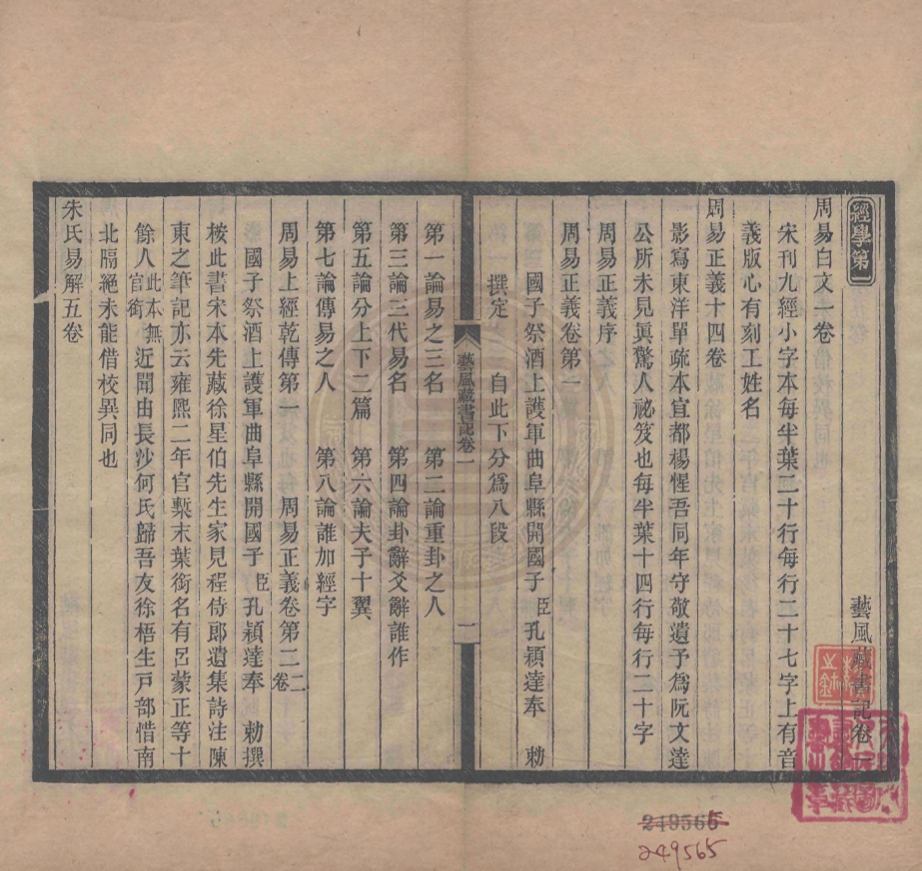 經學第一　藝風藏書記卷一
周易白文一卷
宋刊九經小字本每半葉二十行每行二十七字上有音
義版心有刻工姓名
周易正義十四卷
影寫東洋單疏本宜都楊惺吾同年守敬遺予為阮文達
公所未見眞驚人祕笈也每半葉十四行每行二十字
周易正義序
周易正義卷第一
國子祭酒上護軍曲阜縣開國子臣孔穎達奉　勅
撰定　自此下分為八段
藝風藏書記卷一　一
第一論易之三名　第二論重卦之人
第三論三代易名　第四論卦辭爻辭誰作
第五論分上下二篇　第六論夫子十翼
第七論傳易之人　第八論誰加經字
周易上經乾傳第一　周易正義卷第二卷二
國子祭酒上護軍曲阜縣開國子臣孔穎達奉　勅撰
桉此書宋本先藏徐星伯先生家見程侍郎遺集詩注陳
東之筆記亦云雍熙二年官槧末葉銜名有呂蒙正等十
餘人此本無官銜近聞由長沙何氏歸吾友徐梧生戸部惜南
北隔絕未能借校異同也
朱氏易解五卷
249565
249565